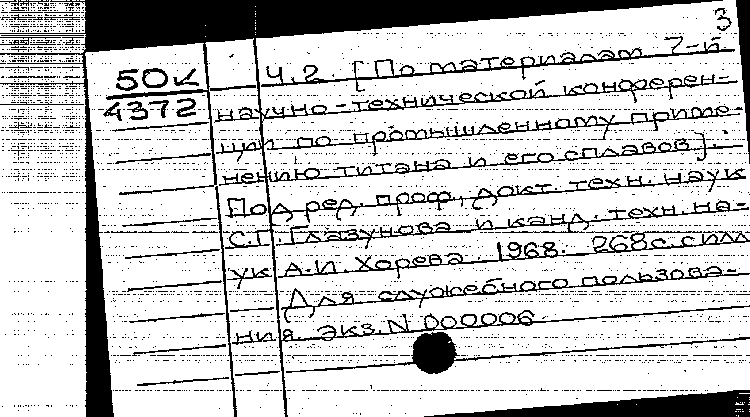 3
50к
4372
Ч.2. [По материалам 7-й
научно-технической конферен-
ции по промышленному приме-
нению титана и его сплавов].
Под ред. проф., докт. техн. наук
С.Г. Глазунова и канд. техн. на-
ук А.И. Хорева. 1968. 268с. с илл
Для служебного пользова-
ния. Экз. N 000006